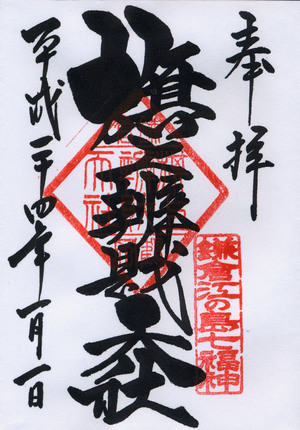 奉拝
鎌倉江の島七福神
旗上辨財天社
平成二十四年一月一日